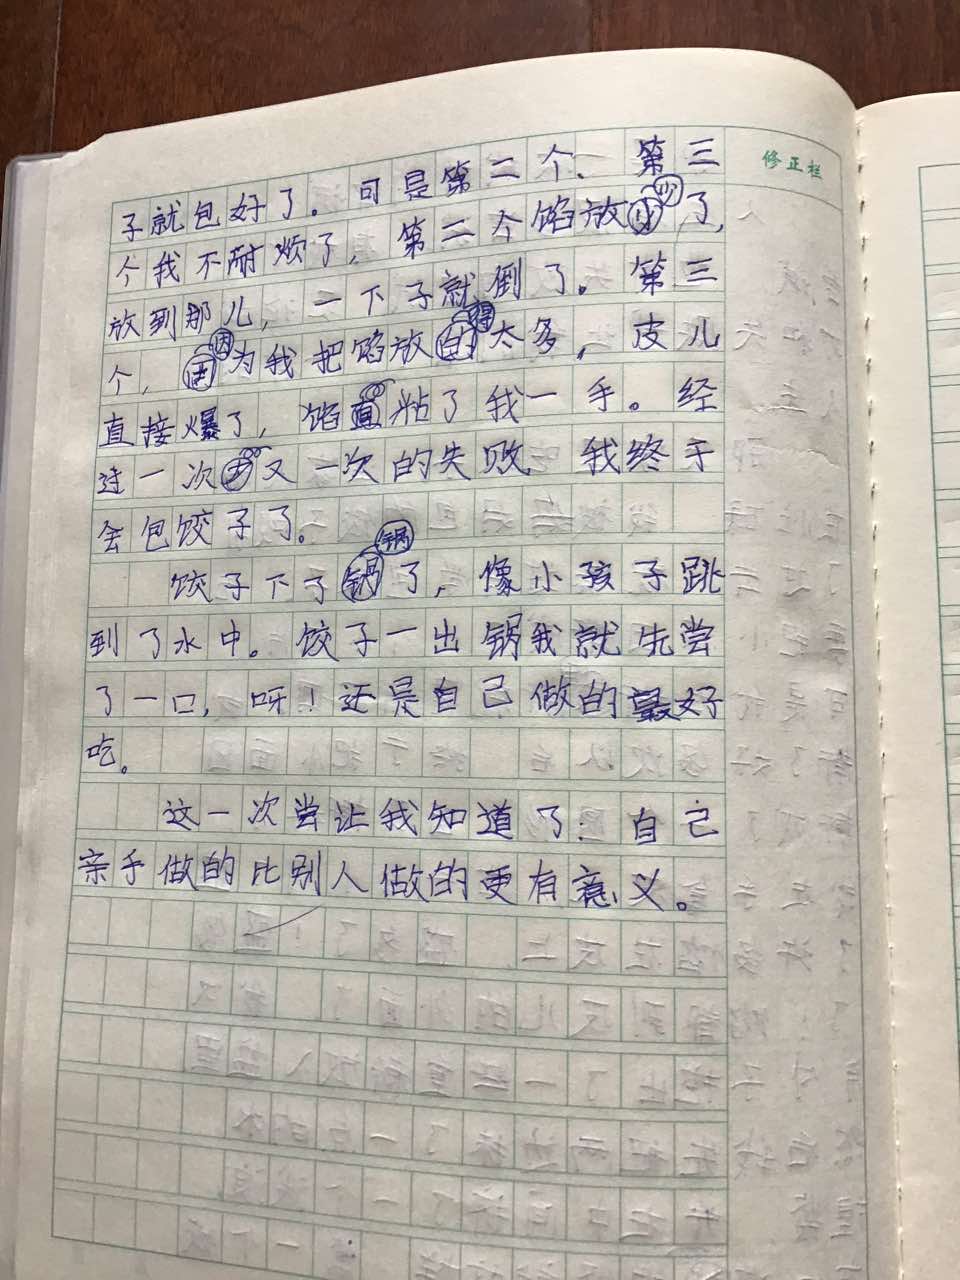 修正栏
子就包好了。可是第二个、第三
个我不耐烦了，第二个馅放少了，
放到那儿，一下子就倒了。第三
个，因为我把馅放得太多，皮儿
直接爆了，馅粘了我一手。经
过一次又一次的失败，我终于
会包饺子了。
饺子下了锅了，像小孩子跳
到了水中。饺子一出锅我就先尝
了一口，呀！还是自己做的最好
吃。
这一次尝让我知道了：自己
亲手做的比别人做的更有意义。